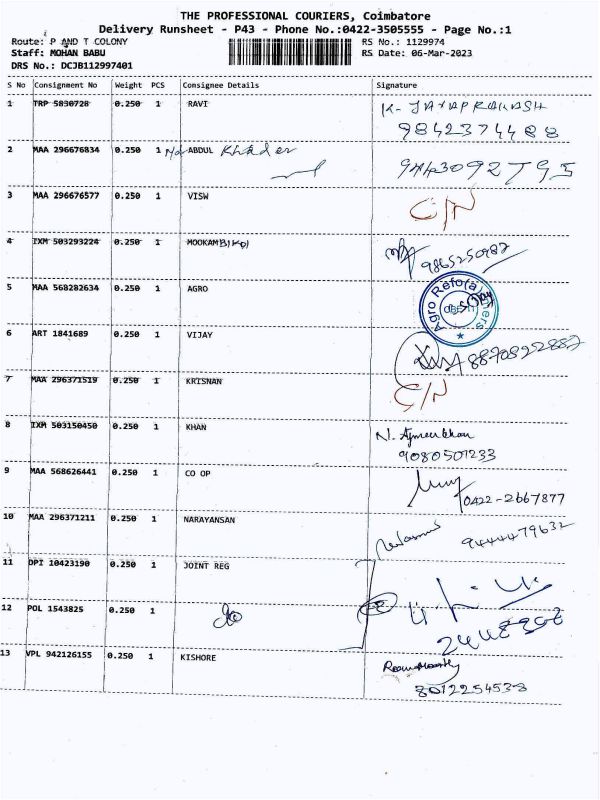 THE PROFESSIONAL COURIERS, Coimbatore
Delivery Runsheet - P43 - Phone No.:0422-3505555 - Page No.:1
Route: P AND T COLONY RS No.: 1129974
Staff: MOHAN BABU RS Date: 06-Mar-2023
DRS No.: DCJB112997401
S No Consignment No Weight PCS Consignee Details Signature
1 TRP 5830728 0.250 1 RAVI K. JAYAPRAKASH
9842374488
2 MAA 296676834 0.250 1 ABDUL Khader 9443092795
3 MAA 296676577 0.250 1 VISW C/N
4 IXM 503293224 0.250 1 MOOKAMBIKAI 9865250987
5 MAA 568282634 0.250 1 AGRO
6 ART 1841689 0.250 1 VIJAY 8870892887
7 MAA 296371519 0.250 1 KRISNAN C/N
8 IXM 503150450 0.250 1 KHAN N. Ajmeerkhan
9080501233
9 MAA 568626441 0.250 1 CO OP 0422-2667877
10 MAA 296371211 0.250 1 NARAYANSAN 9444479632
11 DPI 10423190 0.250 1 JOINT REG
12 POL 1543825 0.250 1 do
13 VPL 942126155 0.250 1 KISHORE
8012254538